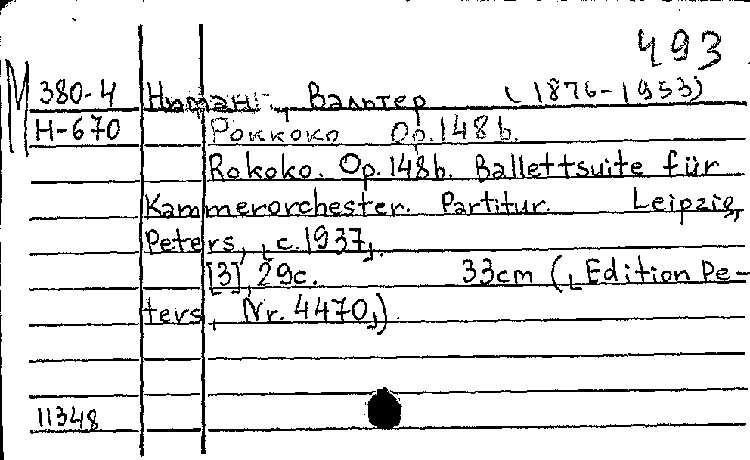 493
М 380-4 Ниман, Вальтер (1876-1953)
Н-670 Роккоко Op. 148 b.
Rokoko. Op. 148b. Ballettsuite für
Kammerorchester. Partitur. Leipzig,
Peters, [c. 1937].
[3], 29c. 33cm ([Edition Pe-
ters, Nr. 4470])
11348